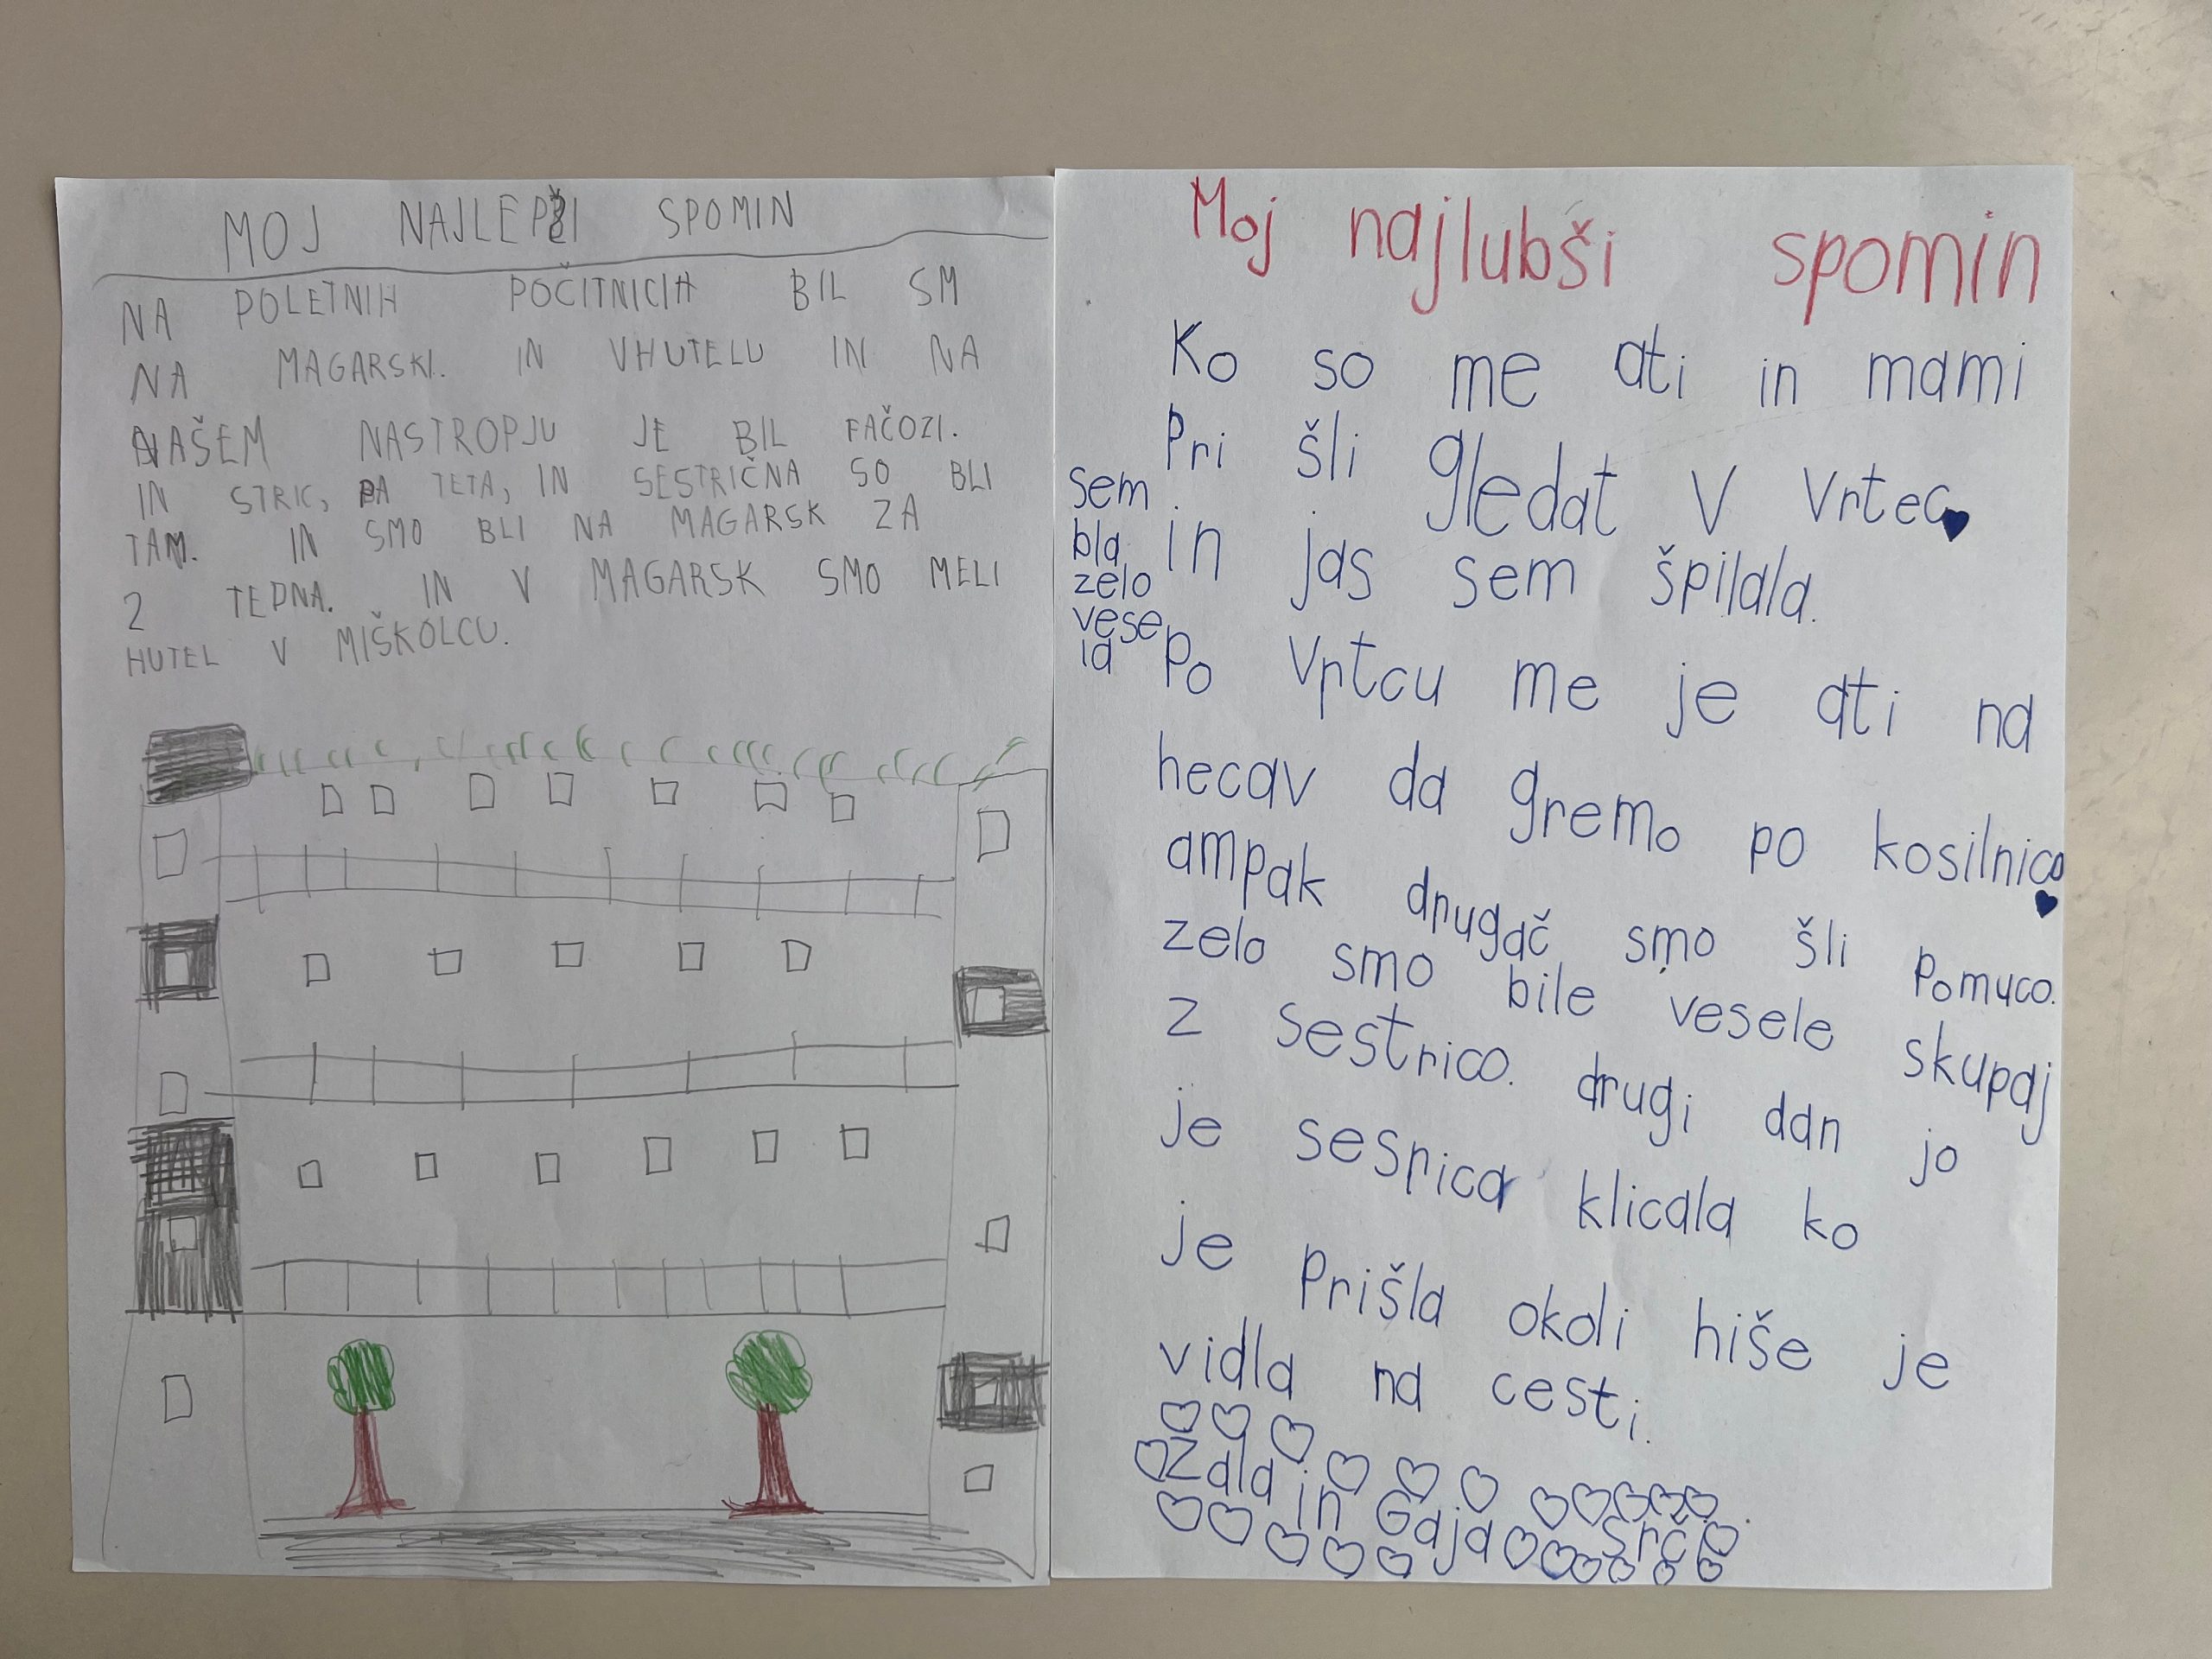 MOJ NAJLEPŠI SPOMIN
NA POLETNIH POČITNICIH BIL SM
NA MAGARSKI. IN VHUTELU IN NA
NAŠEM NASTROPJU JE BIL FAČOZI.
IN STRIC, PA TETA, IN SESTRIČNA SO BLI
TAM. IN SMO BLI NA MAGARSK ZA
2 TEDNA. IN V MAGARSK SMO MELI
HUTEL V MIŠKOLCU.
Moj najlubši spomin
Ko so me ati in mami
Pri šli gledat v vrtec
in jas sem špilala.
sem
bla
zelo
vese
la
Po vrtcu me je ati na
hecav da gremo po kosilnico
ampak drugač smo šli Pomuco.
zelo smo bile vesele skupaj
z sestrico. drugi dan jo
je sesrica klicala ko
je Prišla okoli hiše je
vidla na cesti.
Zala in Gaja Srčo